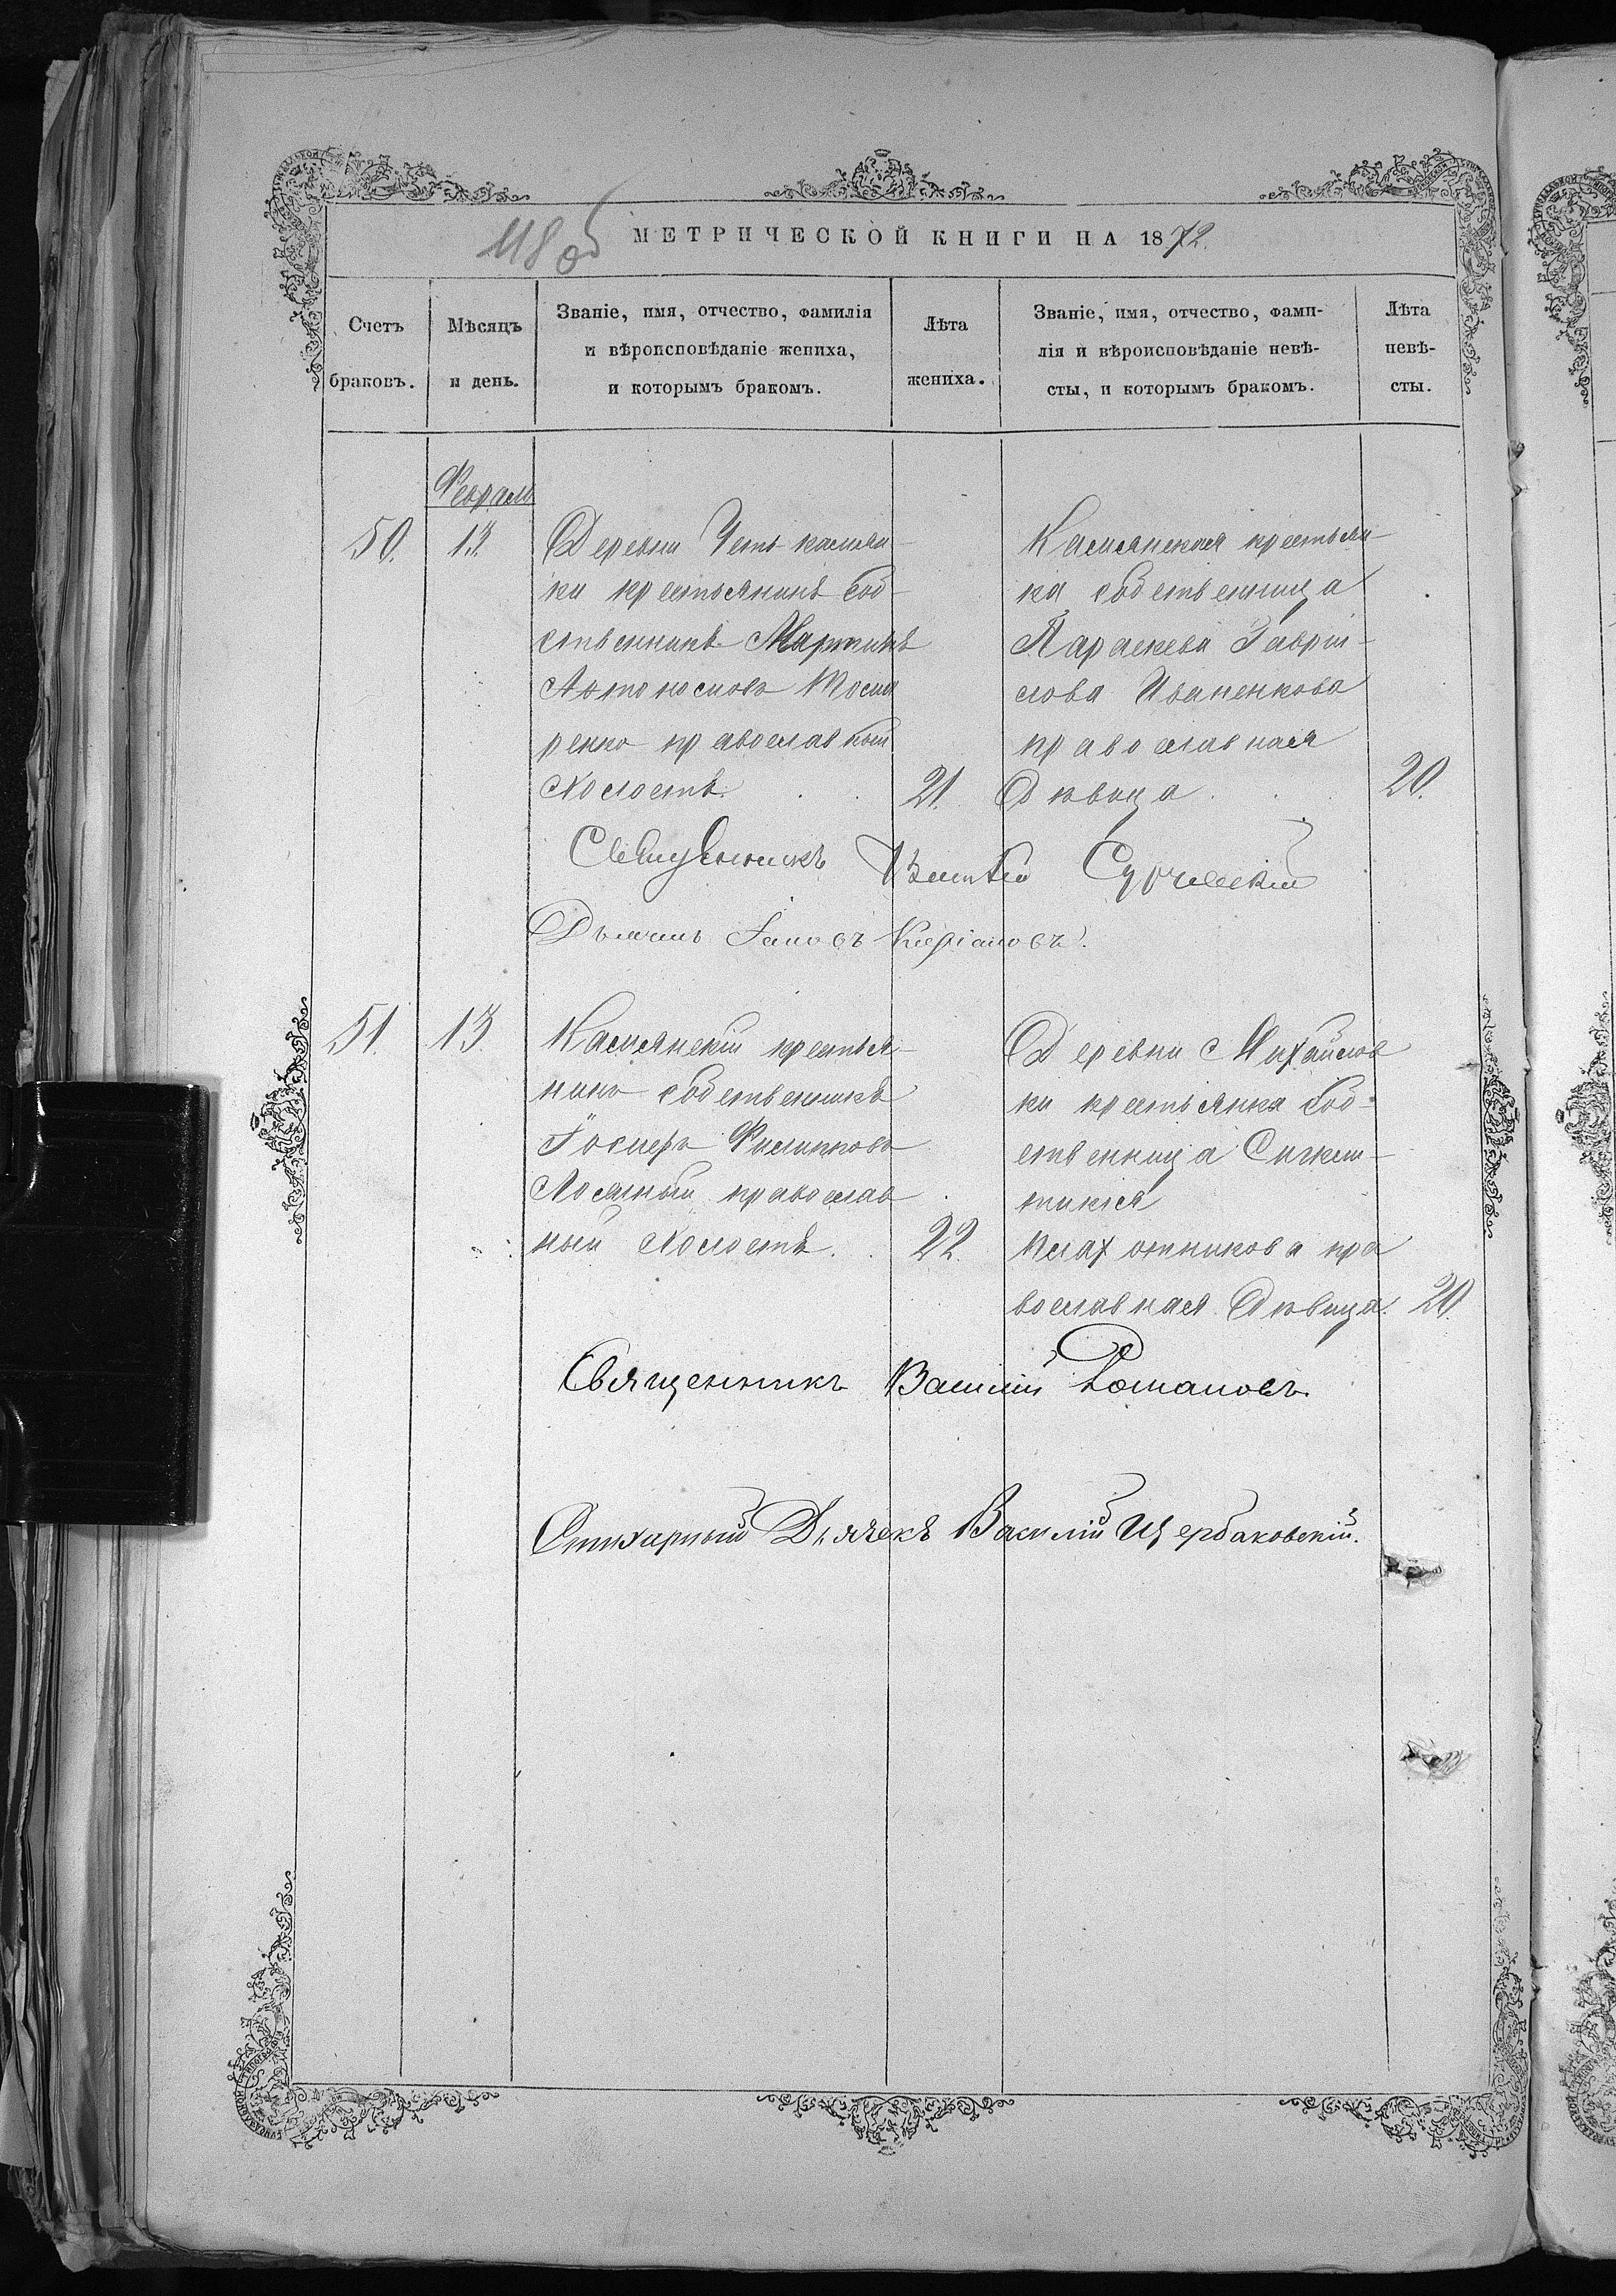 118 об
МЕТРИЧЕСКОЙ КНИГИ НА 1872.
Счетъ браковъ.
Мѣсяцъ и день.
Званіе, имя, отчество, фамилія
и вѣроисповѣданіе жениха,
и которымъ бракомъ.
Лѣта жениха.
Званіе, имя, отчество, фами-
лія и вѣроисповѣданіе невѣ-
сты, и которымъ бракомъ.
Лѣта невѣ-
сты.
Февраль
50.
13.
Деревни Усть-камян-
ки крестьянинъ соб-
ственникъ Мартинъ
Автономовъ
ренко православный
Холостъ.
21.
Камянская крестьян-
ка собственница
Параскева Гаврiи-
лова Иваненкова
православная
Дѣвица
20.
Священникъ Сурчевскій
51.
13.
Камянскій крестья-
нинъ собственникъ
Іосифъ Филипповъ
православ
ный Холостъ.
22.
Деревни Михайлов
ки крестьянка соб-
ственница Синкли-
тикія
Плахотникова пра
вославная Дѣвица.
20.
Священникъ Василій Романовъ.
Стихарный Дьячекъ Василій Щербаковскій.